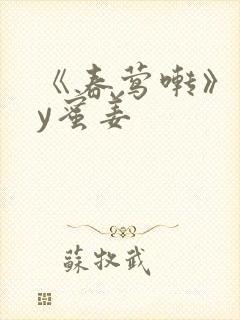 《春莺啭》
y蜜姜
蘇牧武